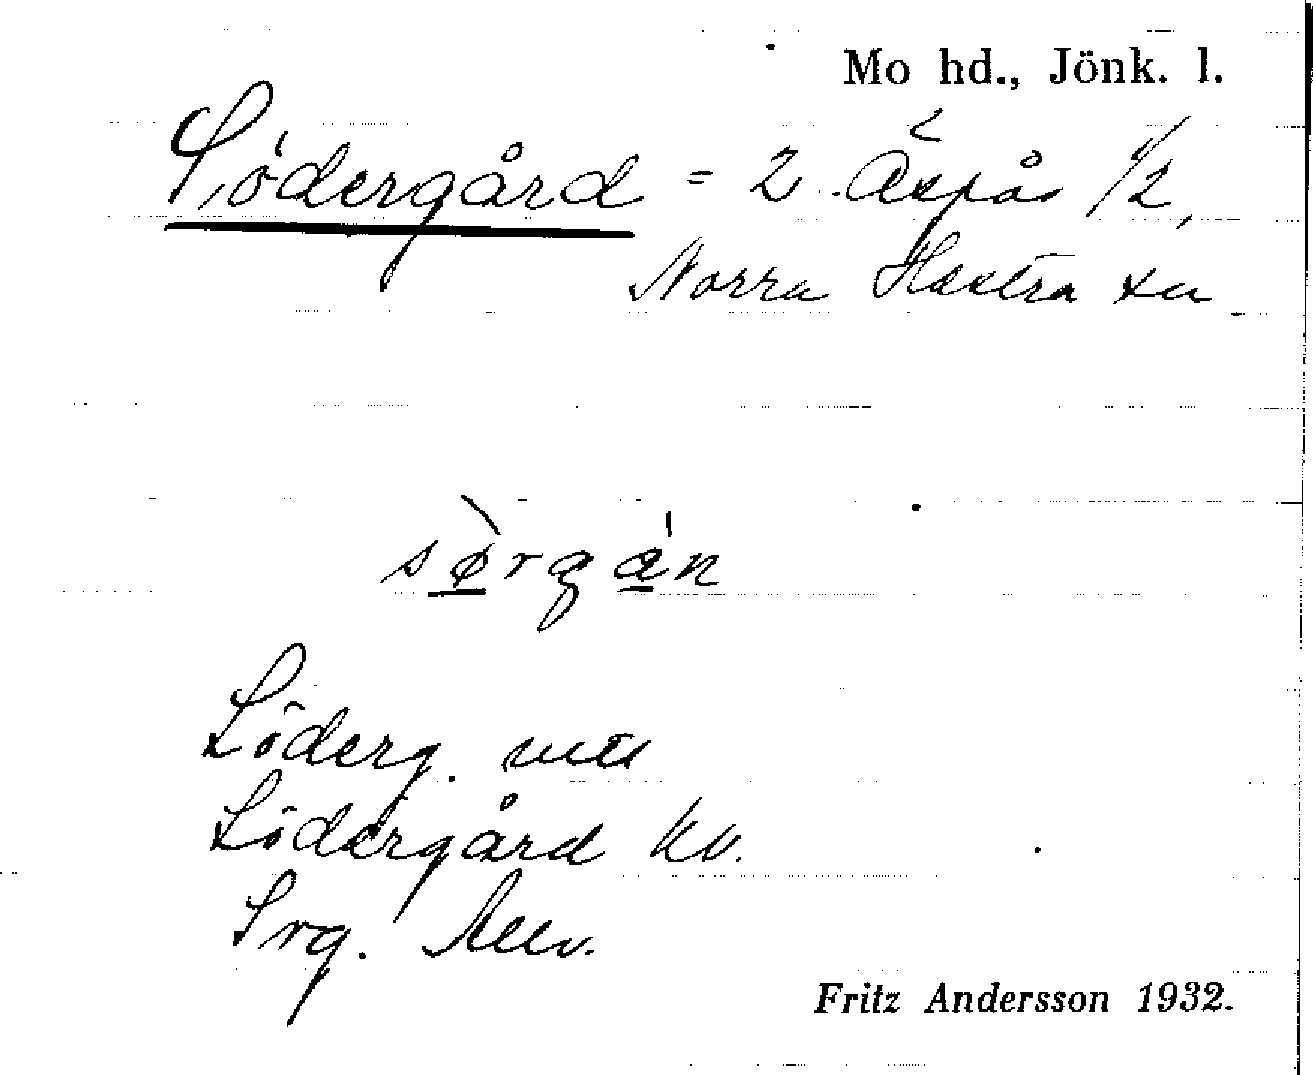 Mo hd., Jönk. l.
Södergård = 2 Äspås 1/2,
Norra Hestra sn
sørgån
Söderg. mtl
Södergård Kv.
Srg. Allv.
Fritz Andersson 1932.